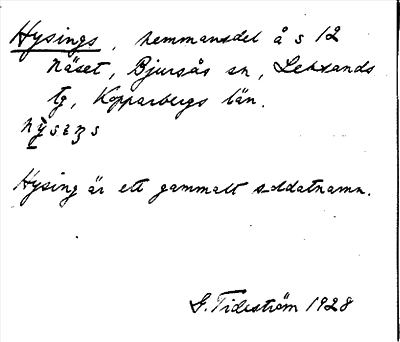 Hysings, hemmansdel å s 12
Näset, Bjursås sn, Leksands
tg, Kopparbergs län.
Hysing är ett gammalt soldatnamn.
G. Tideström 1928